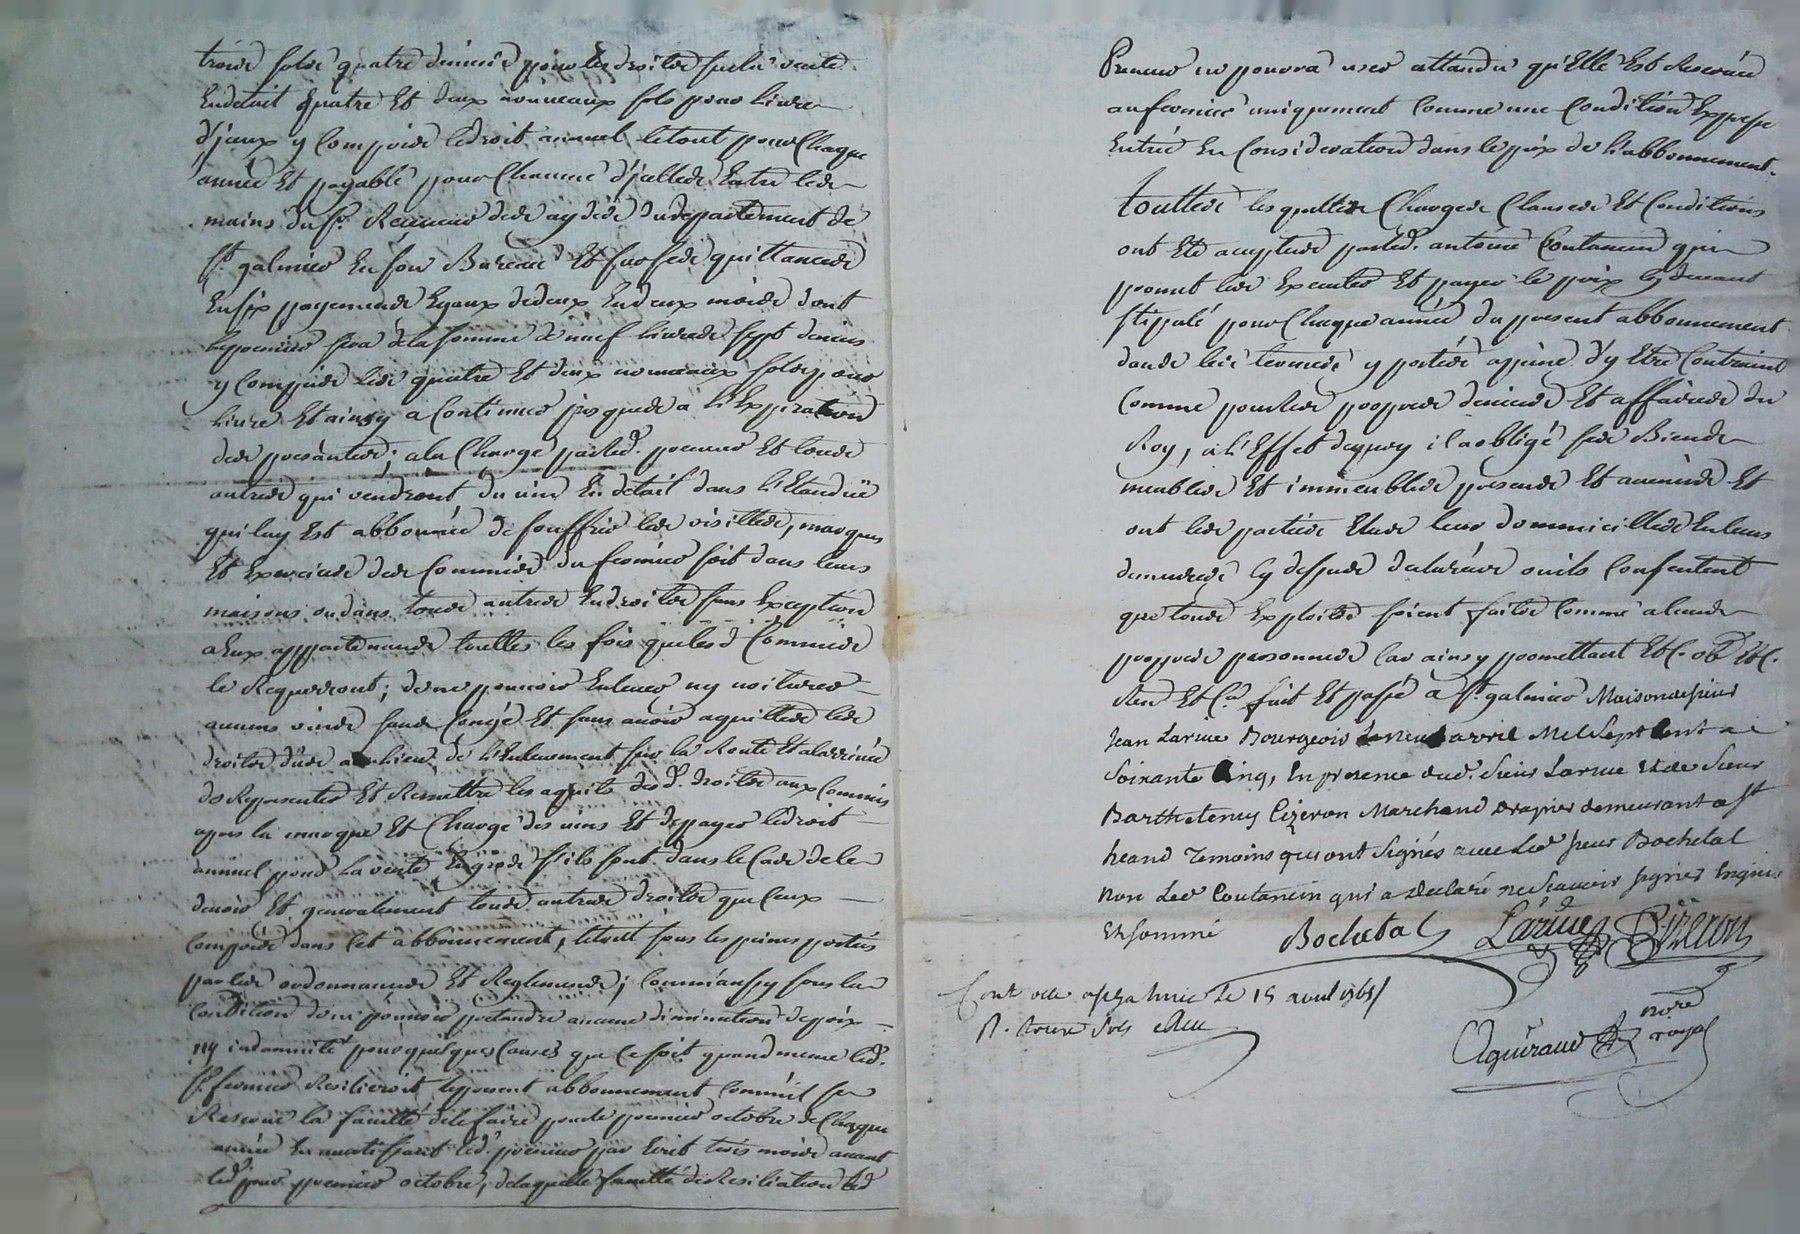 treize sols quatre deniers pour les droits sur la vente
En detail quatre Et deux nouveaux sols pour Livre
d'jceux y Compris Ledroit annuel letout pour Chaque
année Et payable pour Chacune d'jcelles Entre les
mains du Sr. Receveur des aydes du departement de
St. galmier En son Bureau Et sur ses quittances
En six payements Egaux de deux En deux mois dont
le premier sera de la somme de neuf Livres sept deniers
y Compris Les quatre Et deux nouveaux sols pour
Livre Et ainsy a Continuer jusques a L'Expiration
des presantes; a la Charge par led. preneur Et tous
autres qui vendront du vin En detail dans L'Etanduë
qui luy Est abbonnée de souffrir les visittes, marques
Et Exercices des Commis du fermier soit dans leurs
maisons ou dans tous autres Endroits sans Exception
a Eux appartenants touttes les fois que lesd Commis
le Requerront; de ne pouvoir Enlever ny voiturer
aucuns vins sans Congé Et sans avoir aquitté les
droits dûs au Lieu de L'Enlevement sur la Route Et a l'arrivée
de Representer Et Remettre les aquits desd. droits aux Commis
apres la marque Et Charge des vins Et de payer ledroit
annuel pour la vente En gros s'ils sont dans le Cas de le
devoir Et generalement tous autres droits que Ceux
Compris dans Cet abbonnement, letout sous les peines portées
par les ordonnances Et Reglements; Comm'aussy sous la
Condition de ne pouvoir pretandre aucune diminution de prix
ny indamnité pour quelques Causes que Ce soit quand meme led.
Sr. fermier Resilieroit le present abbonnement Comm'il se
Reserve la faculté de le faire pour le premier octobre de Chaque
année En avertissant led. preneur par Ecrit trois mois avant
led jour premier octobre, de laquelle faculté de Resiliation led
Preneur ne pourra user attandu qu'Elle Est Reservée
au fermier uniquement Comme une Condition Expresse
Entrée En Consideration dans le prix de L'abbonnement.
Touttes lesquelles Charges Clauses Et Conditions
ont Eté acceptées par led. antoine Coutancin qui
promet les Executer Et payer le prix Cy devant
stipulé pour Chaque année du present abbonnement
dans les termes y portés appine d'y Etre Contraint
Comme pour les propres deniers Et affaires du
Roy, a L'Effet dequoy il a obligé ses Biens
meubles Et immeubles presents Et avenirs Et
ont les parties Elus leur dommicilles En leurs
demeures Cy dessus declarées ou ils Consentent
que tous Exploits soient faits Comme a leurs
propres personnes Car ainsy promettant Et C. ob Et C.
Ren Et C. fait Et passé a St. galmier Maison de sieur
Jean Larue Bourgeois Le neuf avril Mil Sept Cent
Soixante Cinq, En presence dud. Sieur Larue Et de Sieur
Barthelemy Cizeron Marchand drapier demeurant a St
heand Temoins qui ont Signés avec Led sieur Bochetal
Non Led Coutancin qui a declaré ne Scavoir signer Enquis
Et sommé
Bochetal Larue Cizeron
Cont olle a St galmie Le 15 avril 1765
R. treize sols
Agniraud nore
royal